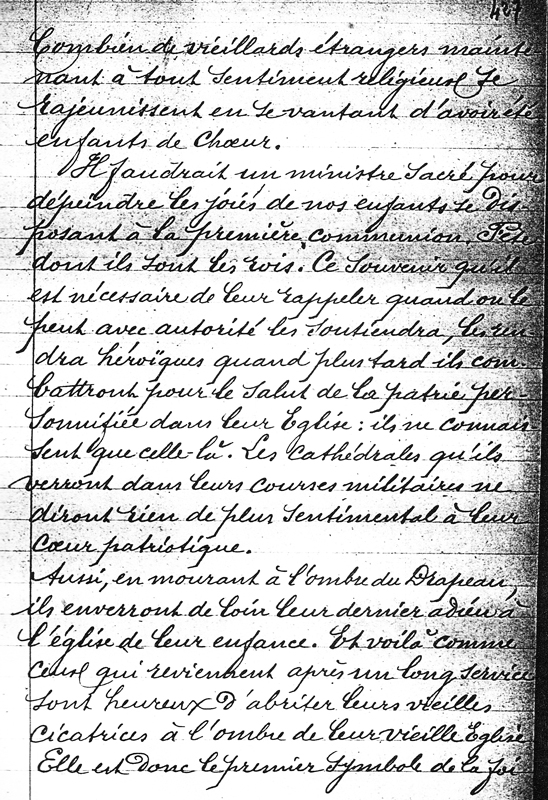 427
Combien de vieillards étrangers mainte
nant à tout sentiment religieux se
rajeunissent en se vantant d'avoir été
enfants de Chœur.
Il faudrait un ministre sacré pour
dépeindre les joies de nos enfants se dis
posant à la première communion. Fête
dont ils sont les rois. Ce souvenir qu'il
est nécessaire de leur rappeler quand on le
peut avec autorité les soutiendra, les ren
dra héroïques quand plus tard ils com-
battront pour le salut de la patrie per-
sonnifiée dans leur Eglise : ils ne connais
sent que celle-là. Les cathédrales qu'ils
verront dans leurs courses militaires ne
diront rien de plus sentimental à leur
cœur patriotique.
Aussi, en mourant à l'ombre du Drapeau,
ils enverront de loin leur dernier adieu à
l'église de leur enfance. Et voilà comme
ceux qui reviennent après un long service
sont heureux d'abriter leurs vieilles
cicatrices à l'ombre de leur vieille Eglise
Elle est donc le premier symbole de la foi